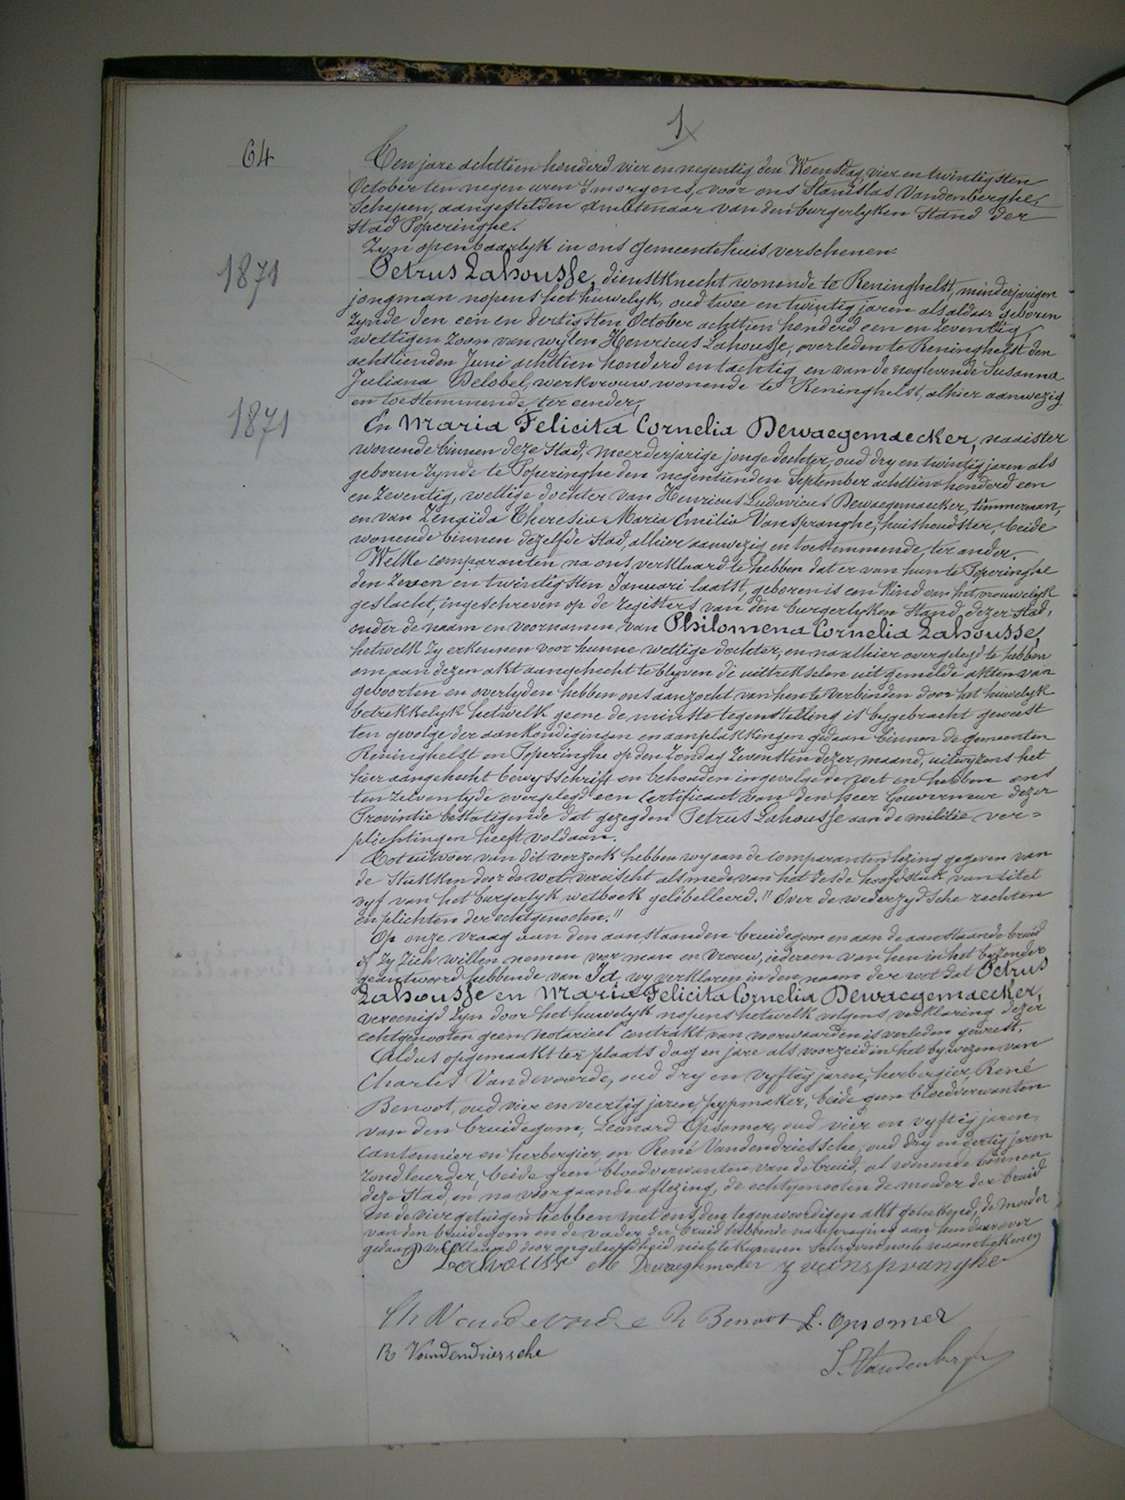 1
64
Ten jare achttien honderd vier en negentig den Woensdag, vier en twintigsten
October ten negen uren 's morgens, voor ons Stanislas Vandenberghe,
Schepen, aangestelden Ambtenaar van den burgerlyken Stand der
Stad Poperinghe.
Zyn openbaarlyk in ons gemeentehuis verschenen
1871
Petrus Lahousse, dienstknecht wonende te Reninghelst, minderjarigen
jongman nopens het huwelyk, oud twee en twintig jaren als aldaar geboren
zynde den een en dertigsten October achttien honderd een en zeventig,
wettigen zoon van wylen Henricus Lahousse, overleden te Reninghelst den
achttienden Juni achttien honderd en tachtig en van de noglevende Susanna
Juliana Delobel, werkvrouw wonende te Reninghelst, alhier aanwezig
en toestemmende, ter eender,
1871
En Maria Felicita Cornelia Dewaegemaecker, naaister
wonende binnen deze Stad, meerderjarige jonge dochter, oud dry en twintig jaren als
geboren zynde te Poperinghe den negentienden September achttien honderd een
en zeventig, wettige dochter van Henricus Ludovicus Dewaegemaecker, timmerman,
en van Zenaïda Theresia Maria Emilia Vanspranghe, huishoudster, beide
wonende binnen dezelfde Stad, alhier aanwezig en toestemmende, ter ander.
Welke comparanten na ons verklaard te hebben dat er van hun te Poperinghe
den zeven en twintigsten Januari laatst, geboren is een Kind van het vrouwelyk
geslacht, ingeschreven op de registers van den burgerlyken Stand dezer stad,
onder de naam en voornamen van Philomena Cornelia Lahousse,
hetwelk zy erkennen voor hunne wettige dochter, en na alhier overgelegd te hebben
om aan dezen akt aangehecht te blyven de uittrekselen uit gemelde akten van
geboorten en overlyden hebben ons aanzocht van hen te verbinden door het huwelyk
betrekkelyk hetwelk geene de minste tegenstelling is bygebracht geweest
ten gevolge der aankondigingen en aanplakkingen gedaan binnen de gemeenten
Reninghelst en Poperinghe op den Zondag zevensten dezer maand, uitwyzens het
hier aangehecht bewysschrift en behouden ingevolge de wet en hebben ons
ten zelven tyde overgelegd een Certificaat van den heer Gouverneur dezer
Provintie bestatigende dat gezegden Petrus Lahousse aan de militie ver=
plichtingen heeft voldaan.
Tot uitvoer van dit verzoek hebben wy aan de comparanten lezing gegeven van
de Stukken door de wet vereischt alsmede van het zesde hoofdstuk van titel
vyf van het burgerlyk wetboek gelibelleerd "Over de wederzydsche rechten
en plichten der echtgenooten."
Op onze vraag aan den aanstaanden bruidegom en aan de aanstaande bruid
of zy zich willen nemen voor man en vrouw, iedereen van hen in het byzonder
geantwoord hebbende van Ja, wy verklaren in den naam der wet dat Petrus
Lahousse en Maria Felicita Cornelia Dewaegemaecker,
vereenigd zyn door het huwelyk nopens hetwelk volgens verklaring dezer
echtgenooten geen notarieel contrakt van voorwaarden is verleden geweest.
Aldus opgemaakt ter plaats dag en jare als voorzeid in het bywezen van
Charles Vandevoorde, oud dry en vyftig jaren, herbergier, René
Benoot, oud vier en veertig jaren, pypmaker, beide geen bloedverwanten
van den bruidegom, Leonard Opsomer, oud vier en vyftig jaren,
cantonnier en herbergier, en René Vandendriessche, oud dry en dertig jaren
beide geen bloedverwanten van de bruid, al wonende binnen
deze Stad, en na voorgaande aflezing, de echtgenooten de moeder der bruid
en de vier getuigen hebben met ons den tegenwoordigen akt geteekend, de moeder
van den bruidegom en de vader der bruid hebbende na afvraging aan hen daarover
gedaan verklaard door ongeleerdheid niet te kunnen schryven noch naamteekenen
P Lahousse M Dewaeghmaker Z vanspranghe
Ch Vandevoorde R Benoot L. Opsomer
R Vandendriessche
S. Vandenberghe